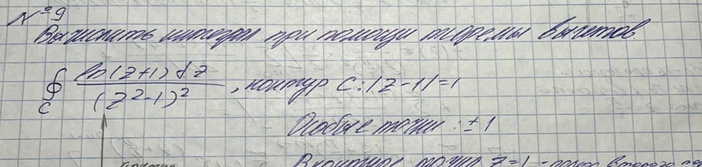 №9
Вычислить интеграл при помощи теоремы вычетов
∮_C ln(z+1)dz / (z²-1)², контур C: |z-1|=1
Особые точки: ±1
В контуре точка z=1 - полюс второго